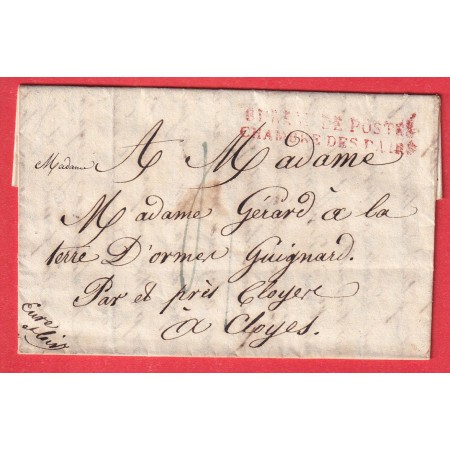 BUREAU DE POSTE
CHAMBRE DES PAIRS
Madame
A Madame
Madame Gérard à la
terre D'ormes Guignard.
Par et près Cloyes
à Cloyes.
Eure
et Loir